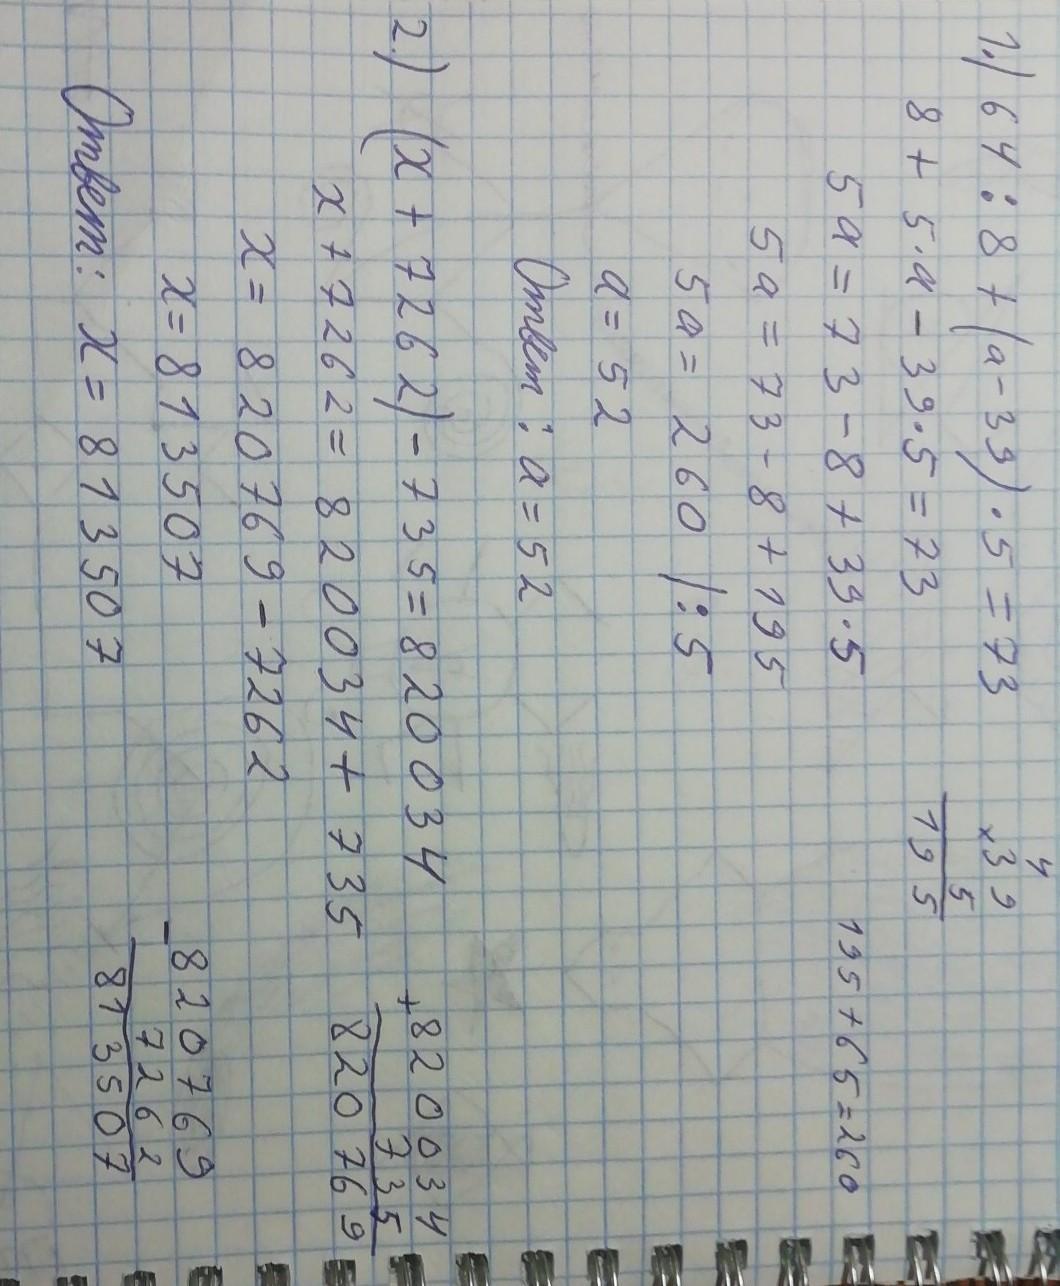 1.) 64 : 8 + (a - 39) · 5 = 73
8 + 5·a - 39·5 = 73
5a = 73 - 8 + 39·5
5a = 73 - 8 + 195
5a = 260 /:5
a = 52
Ответ: a = 52
4
×39
5
195
195 + 65 = 260
2.) (x + 7262) - 735 = 820034
x + 7262 = 820034 + 735
x = 820769 - 7262
x = 813507
Ответ: x = 813507
+820034
735
820769
-820769
7262
813507